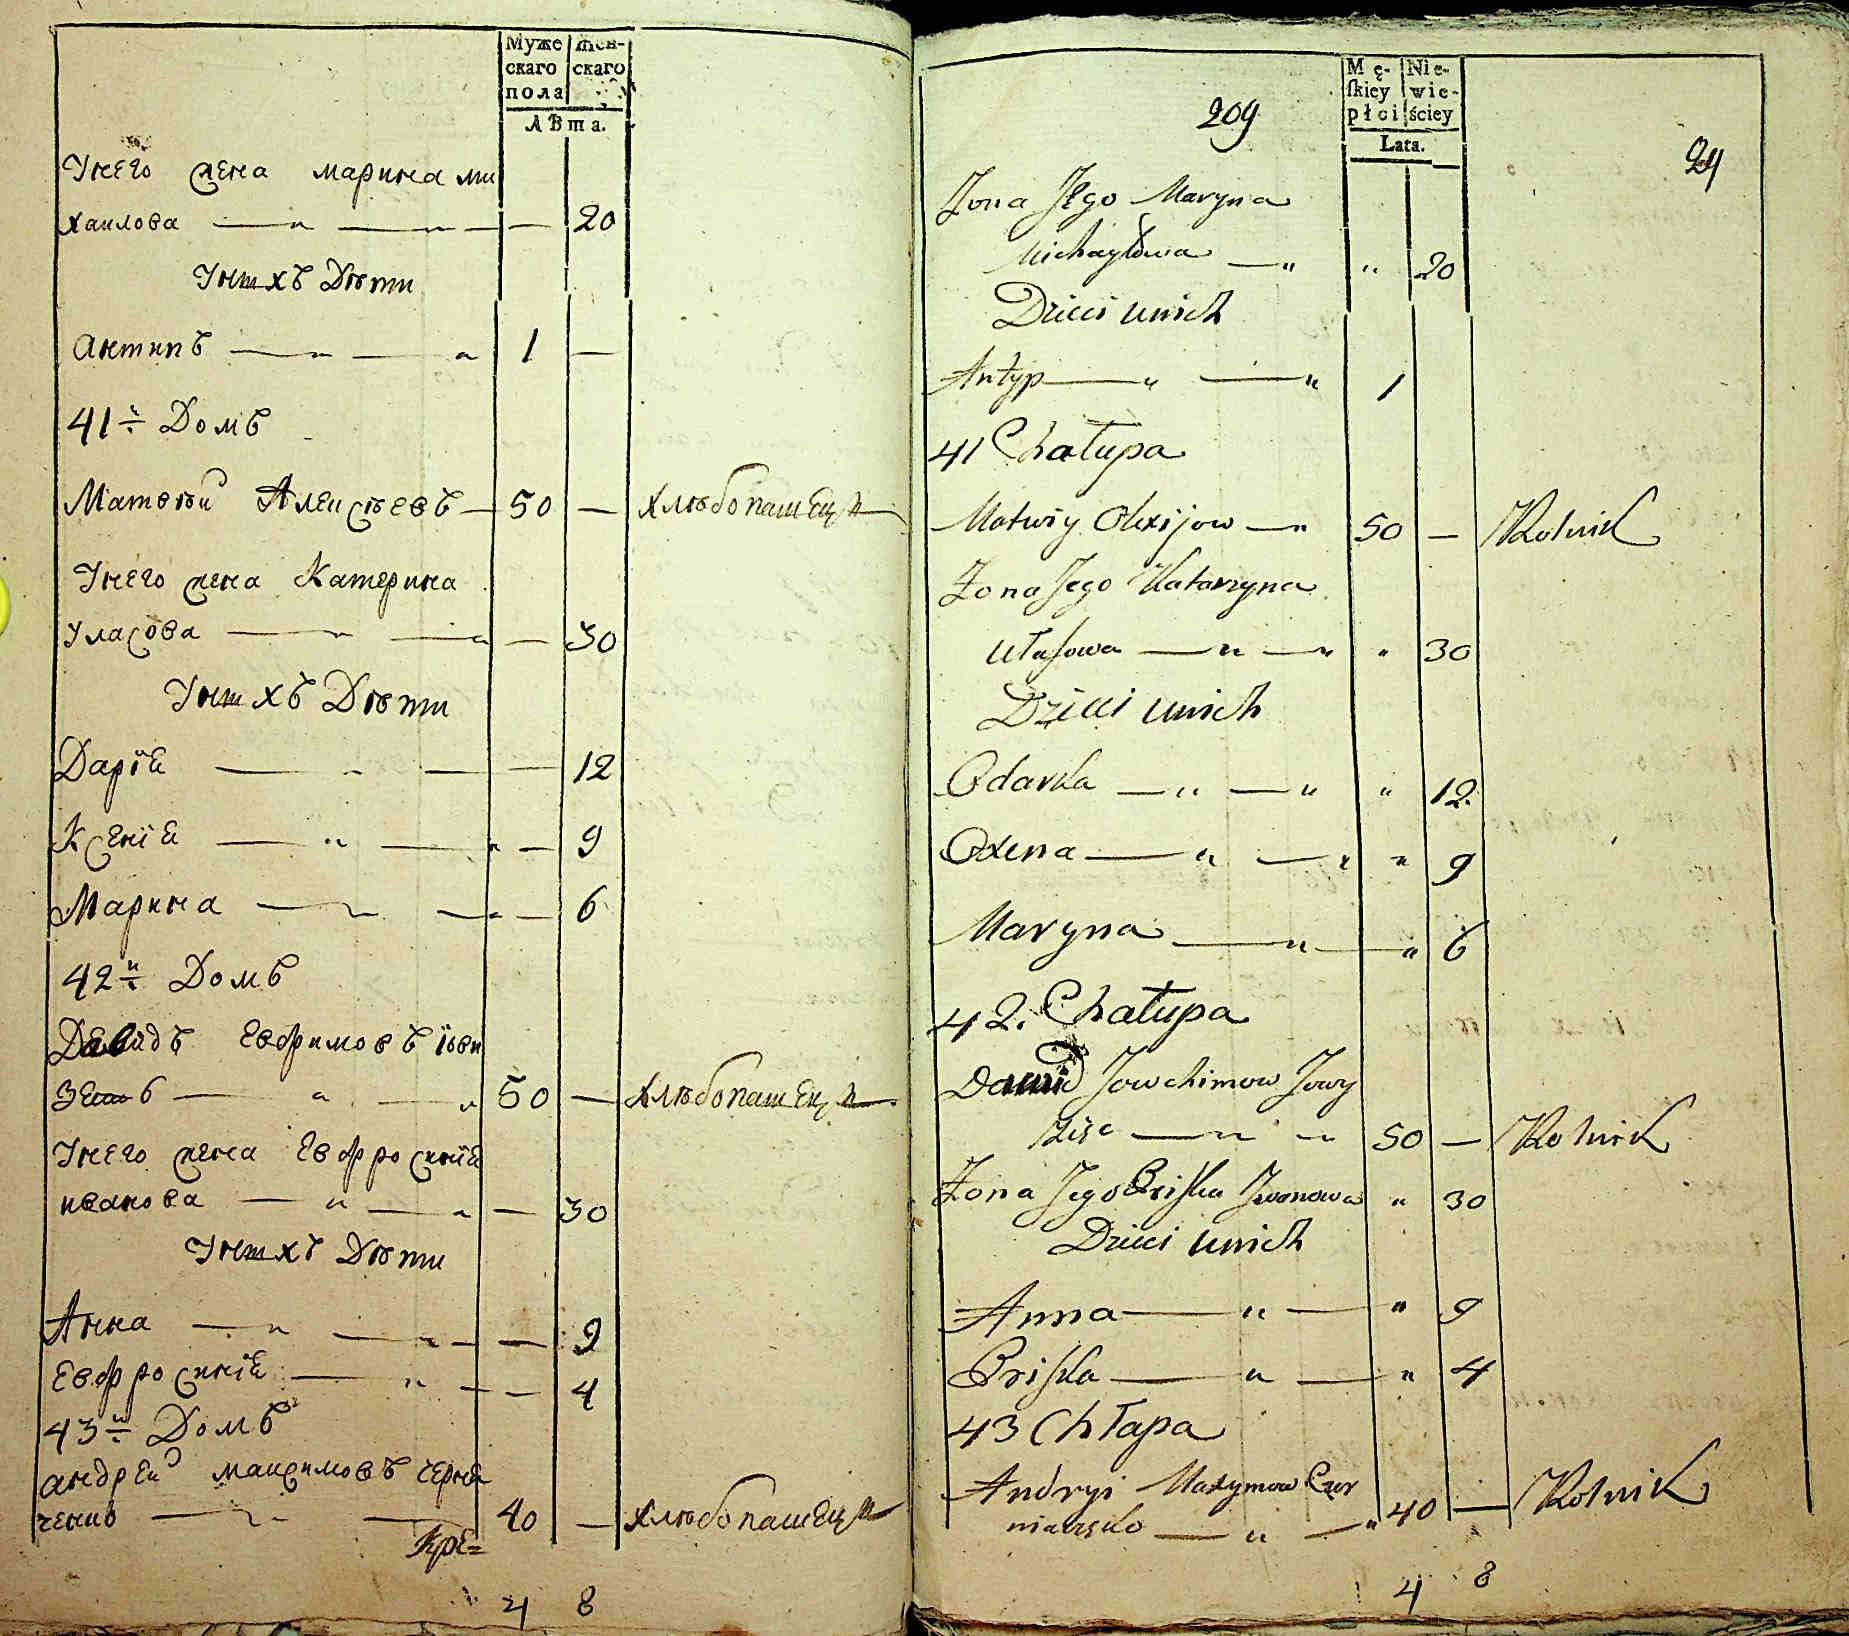 Муже
скаго
пола
Жен-
скаго
Лѣта.
Унего жена марина ми
хаилова 20
Унихъ Дѣти
антипъ 1
41й Домъ
Матвѣй Алексѣевъ 50 хлѣбопашецъ
Унего жена Катерина
Уласова 30
Унихъ Дѣти
Дарія 12
Ксенія 9
Марина 6
42й Домъ
Давидъ Евфимовъ
50 хлѣбопашецъ
Унего жена Евфросинія
иванова 30
Унихъ Дѣти
Анна 9
Евфросинія 4
43й Домъ
андрей максимовъ черня
ченко 40 хлѣбопашецъ
Кре=
4 8
209
24
Mę-
ſkiey
płci
Nie-
wie-
ściey
Lata.
Zona Jego Maryna
Michayłowa 20
Dzieci unich
Antyp 1
41 Chałupa
Matwiy Olexijow 50 Rolnik
Zona Jego Katarzyna
Ułaſowa 30
Dzieci unich
Odarka 12
Oxena 9
Maryna 6
42. Chałupa
Dawid Jowchimow
50 Rolnik
Zona Jego Priſka Jwanowa 30
Dzieci unich
Anna 9
Priſka 4
43 Chłapa
Andryi Maxymow Czer
niaczęko 40 Rolnik
4 8